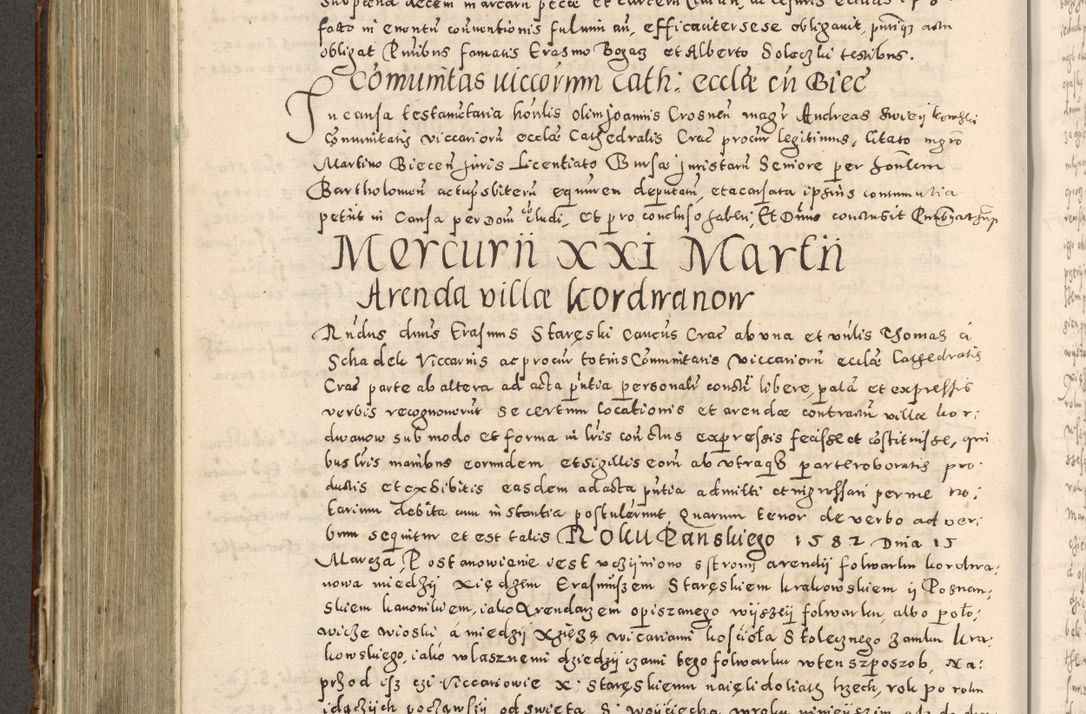 facto in eventū conventionis fulmin an, efficaciter sese obligavit, pn̄tiqʒ actu
obligat Pn̄tibus famatis Erasmo Bogacz et Alberto Soleczki testibus.
Comunitas viccariorum Cath: ecclæ cū Biec
In causa testamētaria hon̄lis olim Joannis Crosnen magr Andreas
Cōmunitatis viccariorū ecclæ Cathedralis Crac procur legitimus, citato mgro
Martino Biecen juris Licentiato Bursæ juristarū Seniore per honlem
Bartholomeū
petiit in causa per Dom cludi, et pro concluso haberi, Et Dnus conclusit
Mercurii XXI Martii
Arenda villæ Kordwanow
Rn̄dus dnus Erasmus Staręski Canc̄us Crac ab una et vn̄lis Thomas á
Schadek Viccarius ac procur totius Comunitatis viccariorū ecclæ Cathedralis
Crac parte ab altera ad acta pn̄tia personalr constū libere, palā et expressis
verbis recognoverūt se certum locationis et arendæ contractū villæ kor:
dwanow sub modo et forma in lris con̄ctus expressis fecisse et cōstituisse, qui
bus lris manibus eorundem et sigillis eorū ab utraqʒ parte roboratis pro:
ductis et exhibitis easdem ad acta pn̄tia admitti et ingrossari per me no:
tarium debita cum instantia postulerunt, Quarum tenor de verbo ad ver:
bum sequitur et est talis Roku Pańskiego 1582 Dnia 15
Marcza, Postanowienie iest vczijniono s strony arendij folwarku kordwa:
nowa miedzij Xiędzem Erasmusem Staręskiem krakowskiem ij Poznan:
skiem kanonikiem, iako Arendarzem opiszanego wijszeij folwarku, albo poło:
wicze wioski á miedzij Xziężą wicariami kościoła Stołecznego zamku kra:
kowskiego, iako własznemi dziedziczami tego folwarku w ten szposzob, Na:
przod isz czi Viccariowie X: Staręskiemu naięli do liath trzech, rok po roku
idączijch począwszij od święta S: Woijciecha